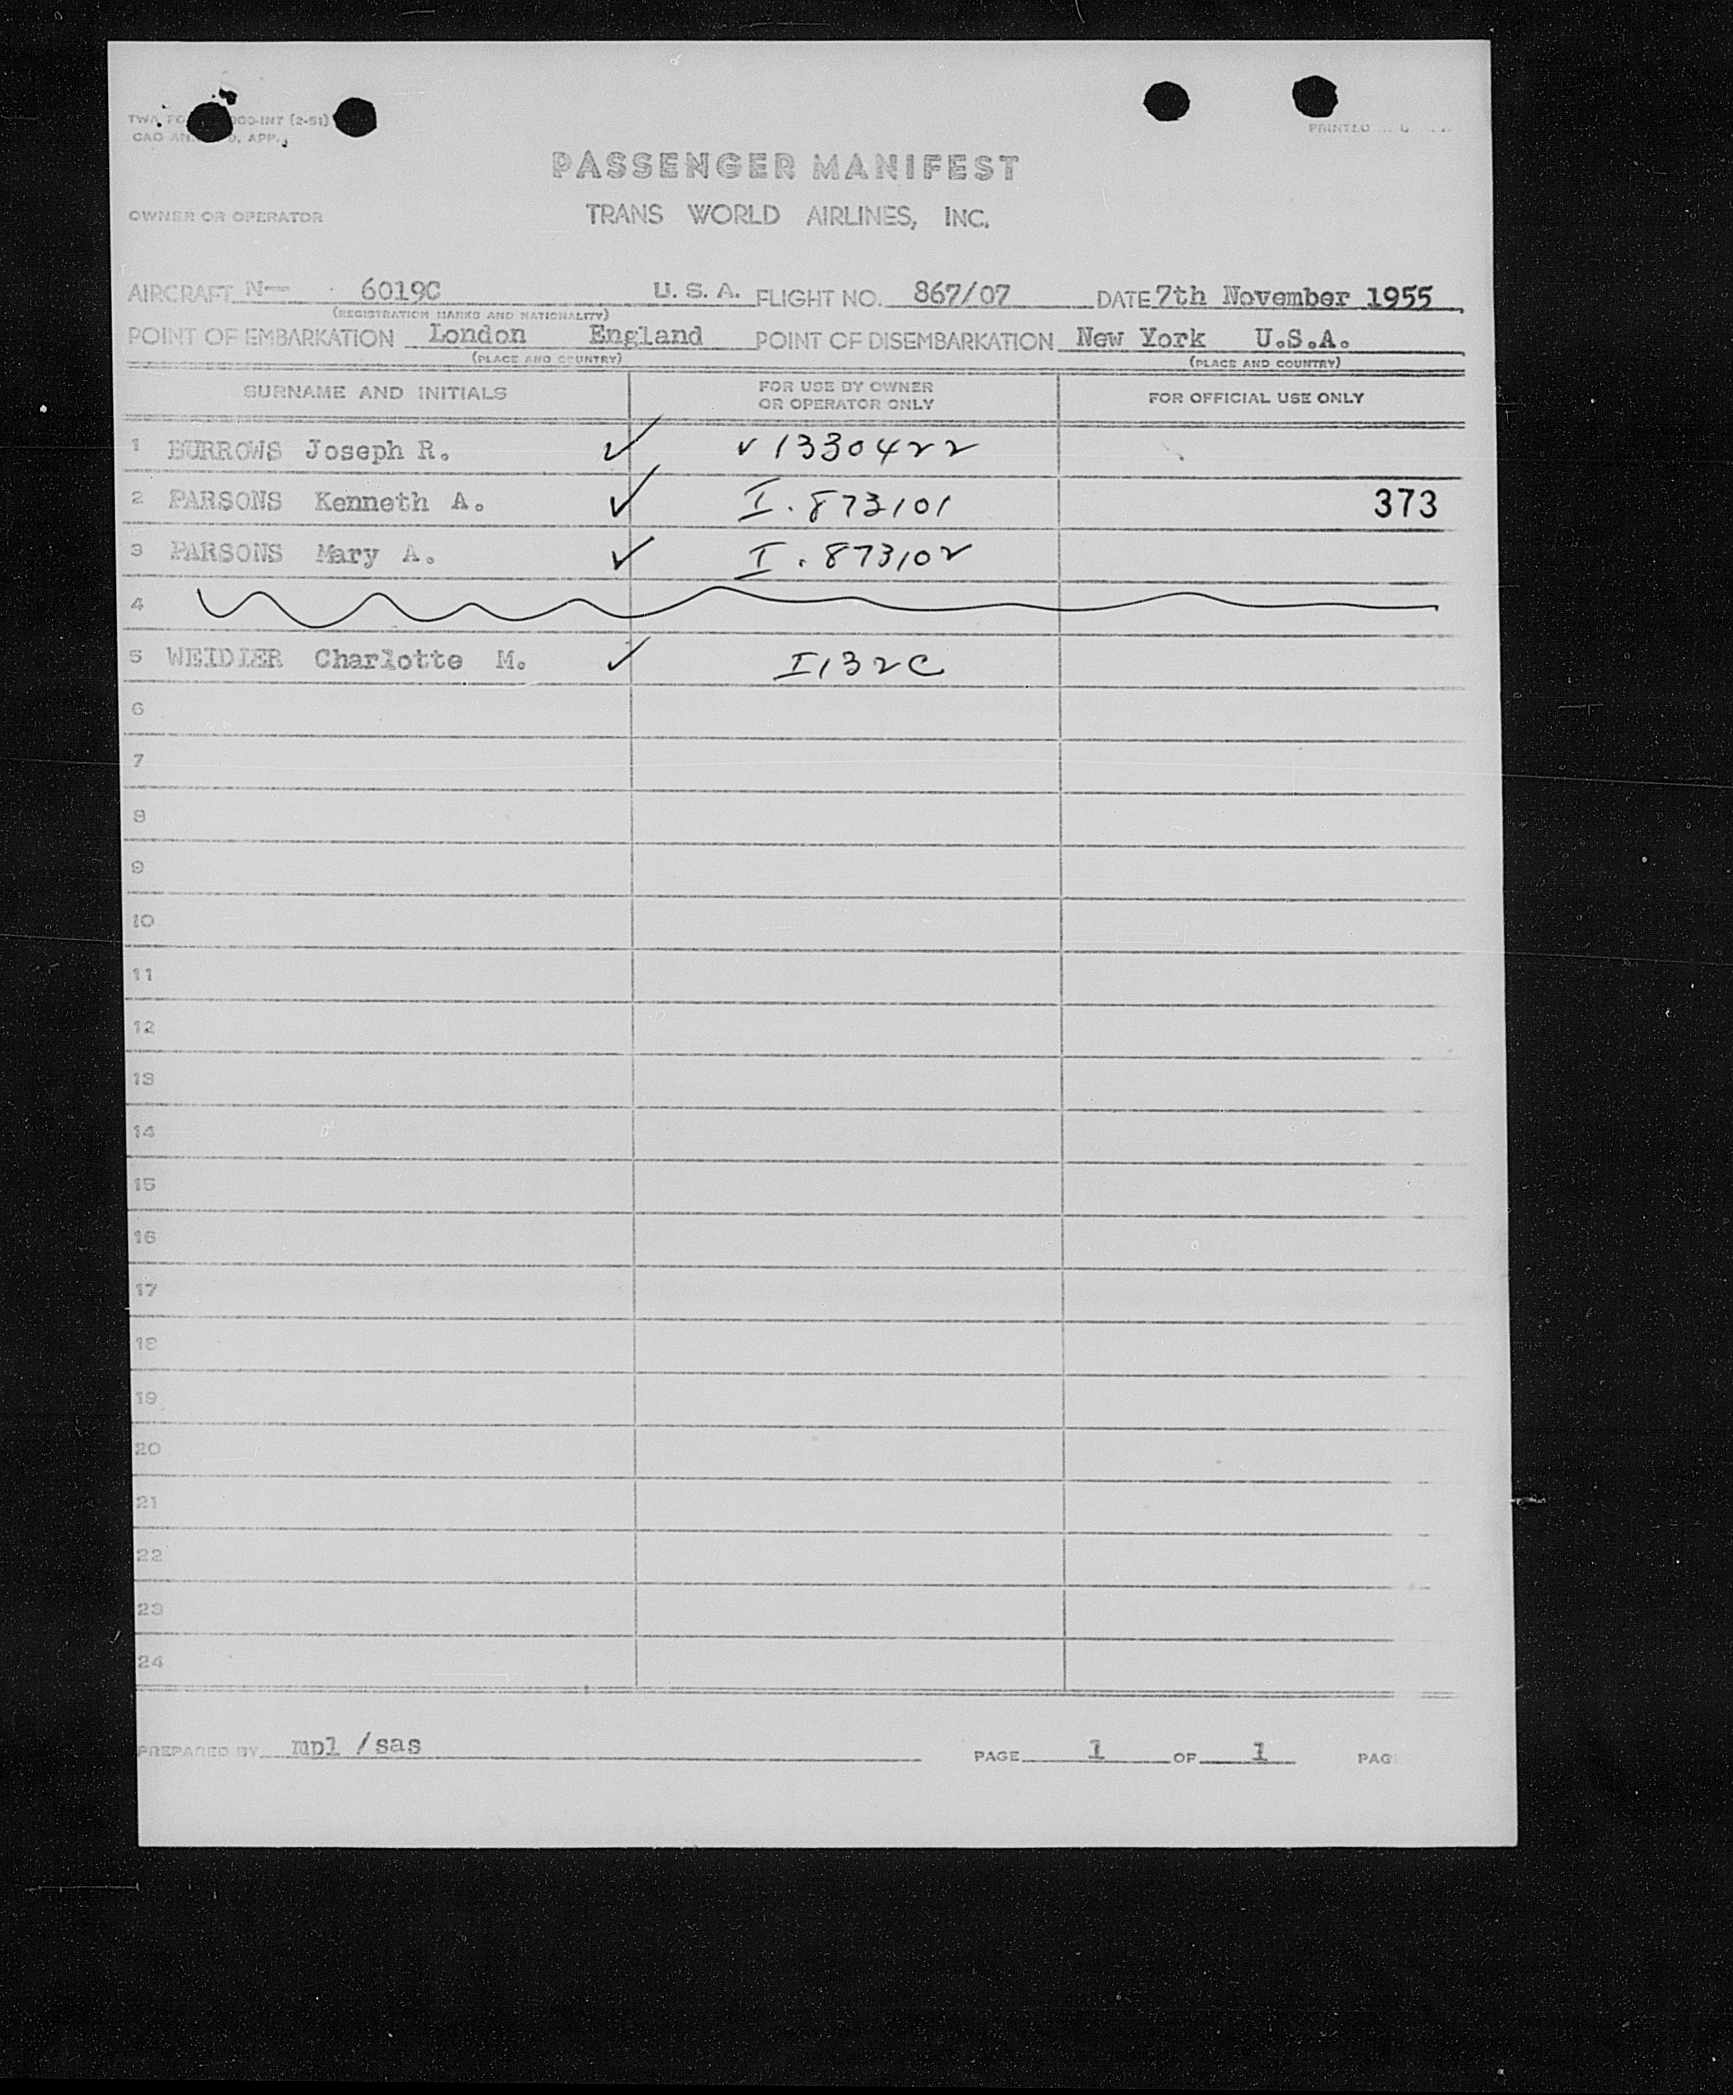 TWA 000-INT (2-51)
CAO APP.
PRINTED
PASSENGER MANIFEST
OWNER OR OPERATOR TRANS WORLD AIRLINES, INC.
AIRCRAFT N— 6019C U. S. A. FLIGHT NO. 867/07 DATE 7th November 1955
(REGISTRATION MARKS AND NATIONALITY)
POINT OF EMBARKATION London England POINT OF DISEMBARKATION New York U.S.A.
(PLACE AND COUNTRY) (PLACE AND COUNTRY)
SURNAME AND INITIALS FOR USE BY OWNER OR OPERATOR ONLY FOR OFFICIAL USE ONLY
1 BURROWS Joseph R. ✓ ✓ 1330422
2 PARSONS Kenneth A. ✓ I. 873101 373
3 PARSONS Mary A. ✓ I. 873102
4
5 WEIDLER Charlotte M. ✓ I132C
6
7
8
9
10
11
12
13
14
15
16
17
18
19
20
21
22
23
24
PREPARED BY mpl /sas PAGE 1 OF 1 PAG